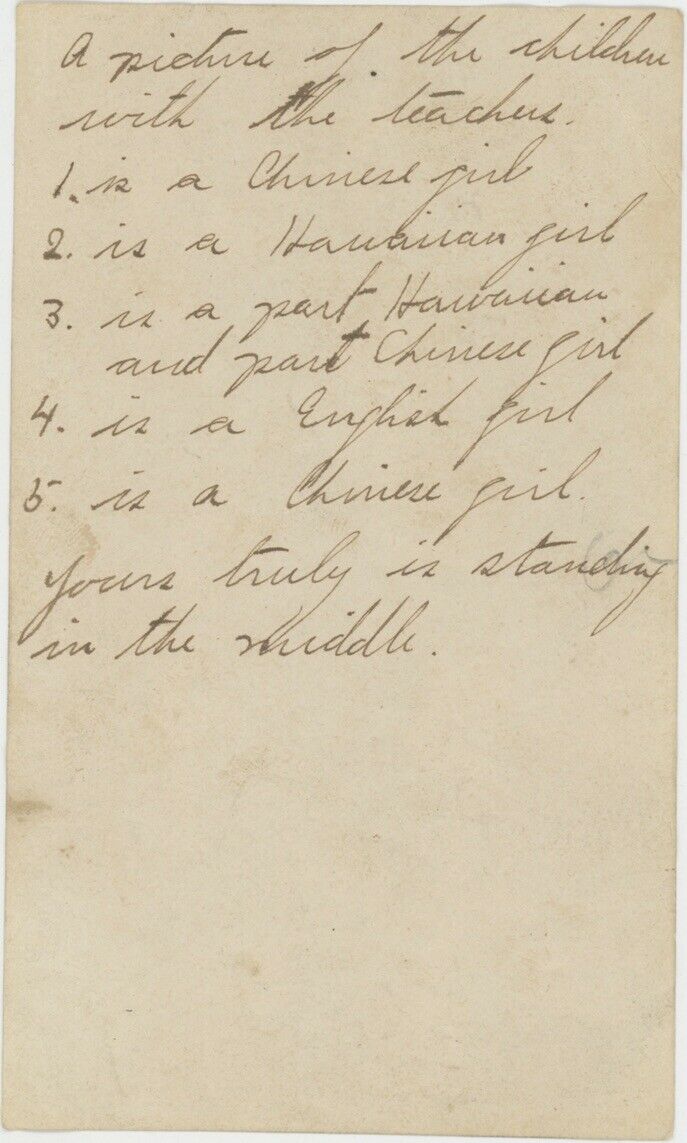 A picture of the children
with the teachers.
1. is a Chinese girl
2. is a Hawaiian girl
3. is a part Hawaiian
and part Chinese girl
4. is a English girl
5. is a Chinese girl.
Yours truly is standing
in the middle.